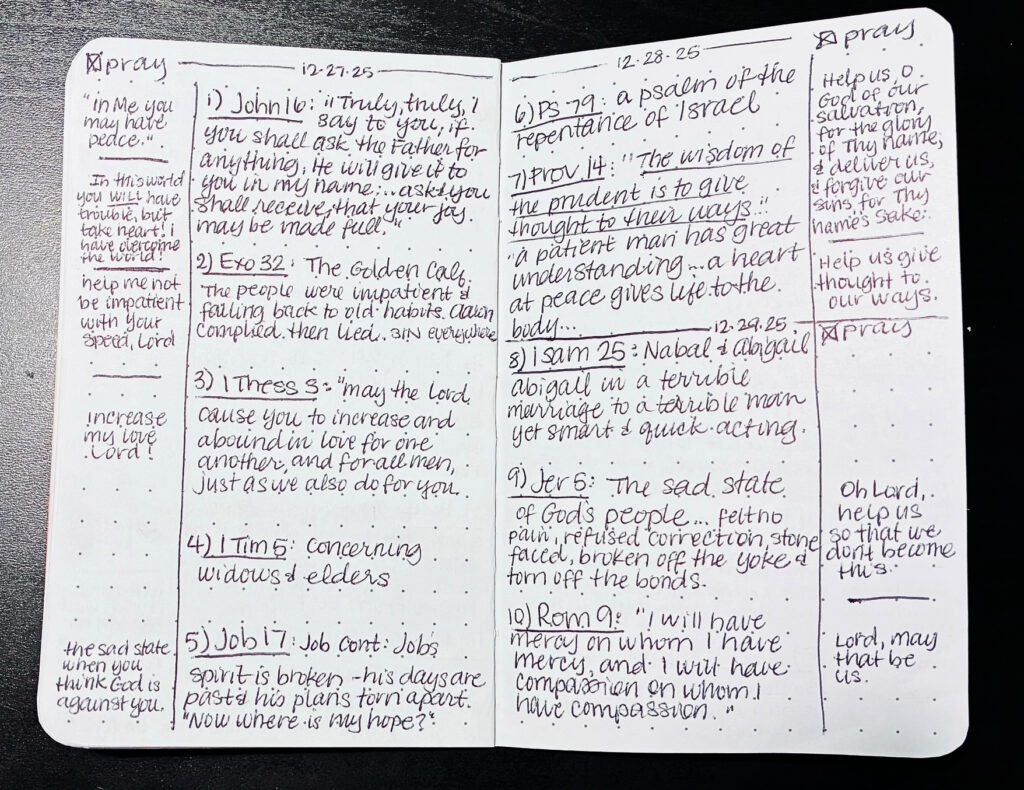 ☒ pray
"in Me you
may have
peace."
In this world
you WILL have
trouble, but
take heart! I
have overcome
the world!
help me not
be impatient
with your
speed, Lord
increase
my love
Lord!
the sad state
when you
think God is
against you.
12.27.25
1) John 16: "Truly, truly, I
say to you, if
you shall ask the Father for
anything, He will give it to
you in my name... ask & you
shall receive, that your joy
may be made full."
2) Exo 32: The Golden Calf.
The people were impatient &
falling back to old habits. Aaron
complied, then lied. SIN everywhere
3) 1 Thess 3: "may the Lord
cause you to increase and
abound in love for one
another, and for all men,
just as we also do for you.
4) 1 Tim 5: Concerning
widows & elders
5) Job 17: Job cont: Job's
spirit is broken - his days are
past & his plans torn apart.
"Now where is my hope?"
12.28.25
6) Ps 79: a psalm of the
repentance of Israel
7) Prov. 14: "The wisdom of
the prudent is to give
thought to their ways..."
"a patient man has great
understanding... a heart
at peace gives life to the
body...
12.29.25
8) 1 Sam 25: Nabal & abigail
abigail in a terrible
marriage to a terrible man
yet smart & quick acting.
9) Jer 5: The sad state
of God's people... felt no
pain, refused correction, stone
faced, broken off the yoke &
torn off the bonds.
10) Rom 9: "I will have
mercy on whom I have
mercy, and I will have
compassion on whom I
have compassion."
☒ pray
Help us, O
God of our
salvation,
for the glory
of Thy name;
& deliver us,
& forgive our
sins for Thy
name's sake.
Help us give
thought to
our ways.
☒ pray
Oh Lord,
help us
so that we
don't become
this.
Lord, may
that be
us.